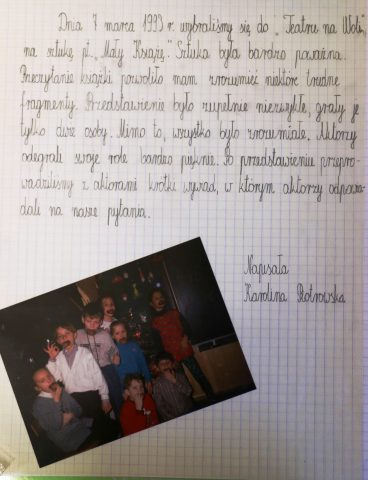 Dnia 7 marca 1993 r. wybraliśmy się do „Teatru na Woli”,
na sztukę pt. „Mały Książę”. Sztuka była bardzo poważna.
Przeczytanie książki pozwoliło nam zrozumieć niektóre trudne
fragmenty. Przedstawienie było zupełnie niezwykłe, grały je
tylko dwie osoby. Mimo to, wszystko było zrozumiałe. Aktorzy
odegrali swoje role bardzo pięknie. Po przedstawieniu przepro-
wadziliśmy z aktorami krótki wywiad, w którym aktorzy odpowia-
dali na nasze pytania.
Napisała
Karolina Piotrowska